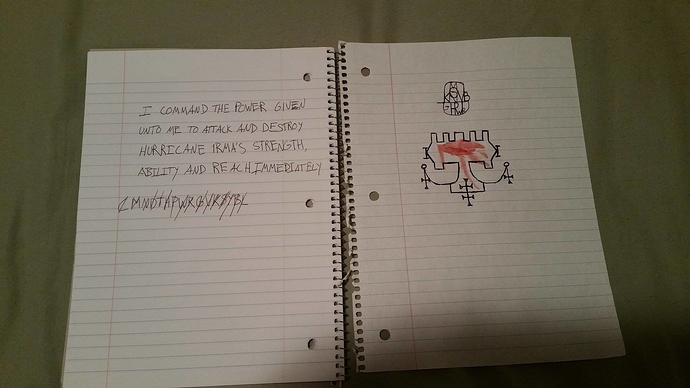 I COMMAND THE POWER GIVEN
UNTO ME TO ATTACK AND DESTROY
HURRICANE IRMA'S STRENGTH,
ABILITY AND REACH IMMEDIATELY